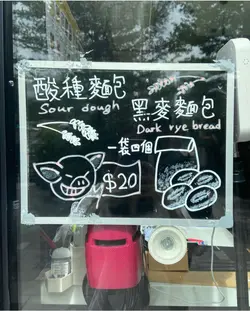 酸種麵包
Sour dough
黑麥麵包
Dark rye bread
一袋四個
$20